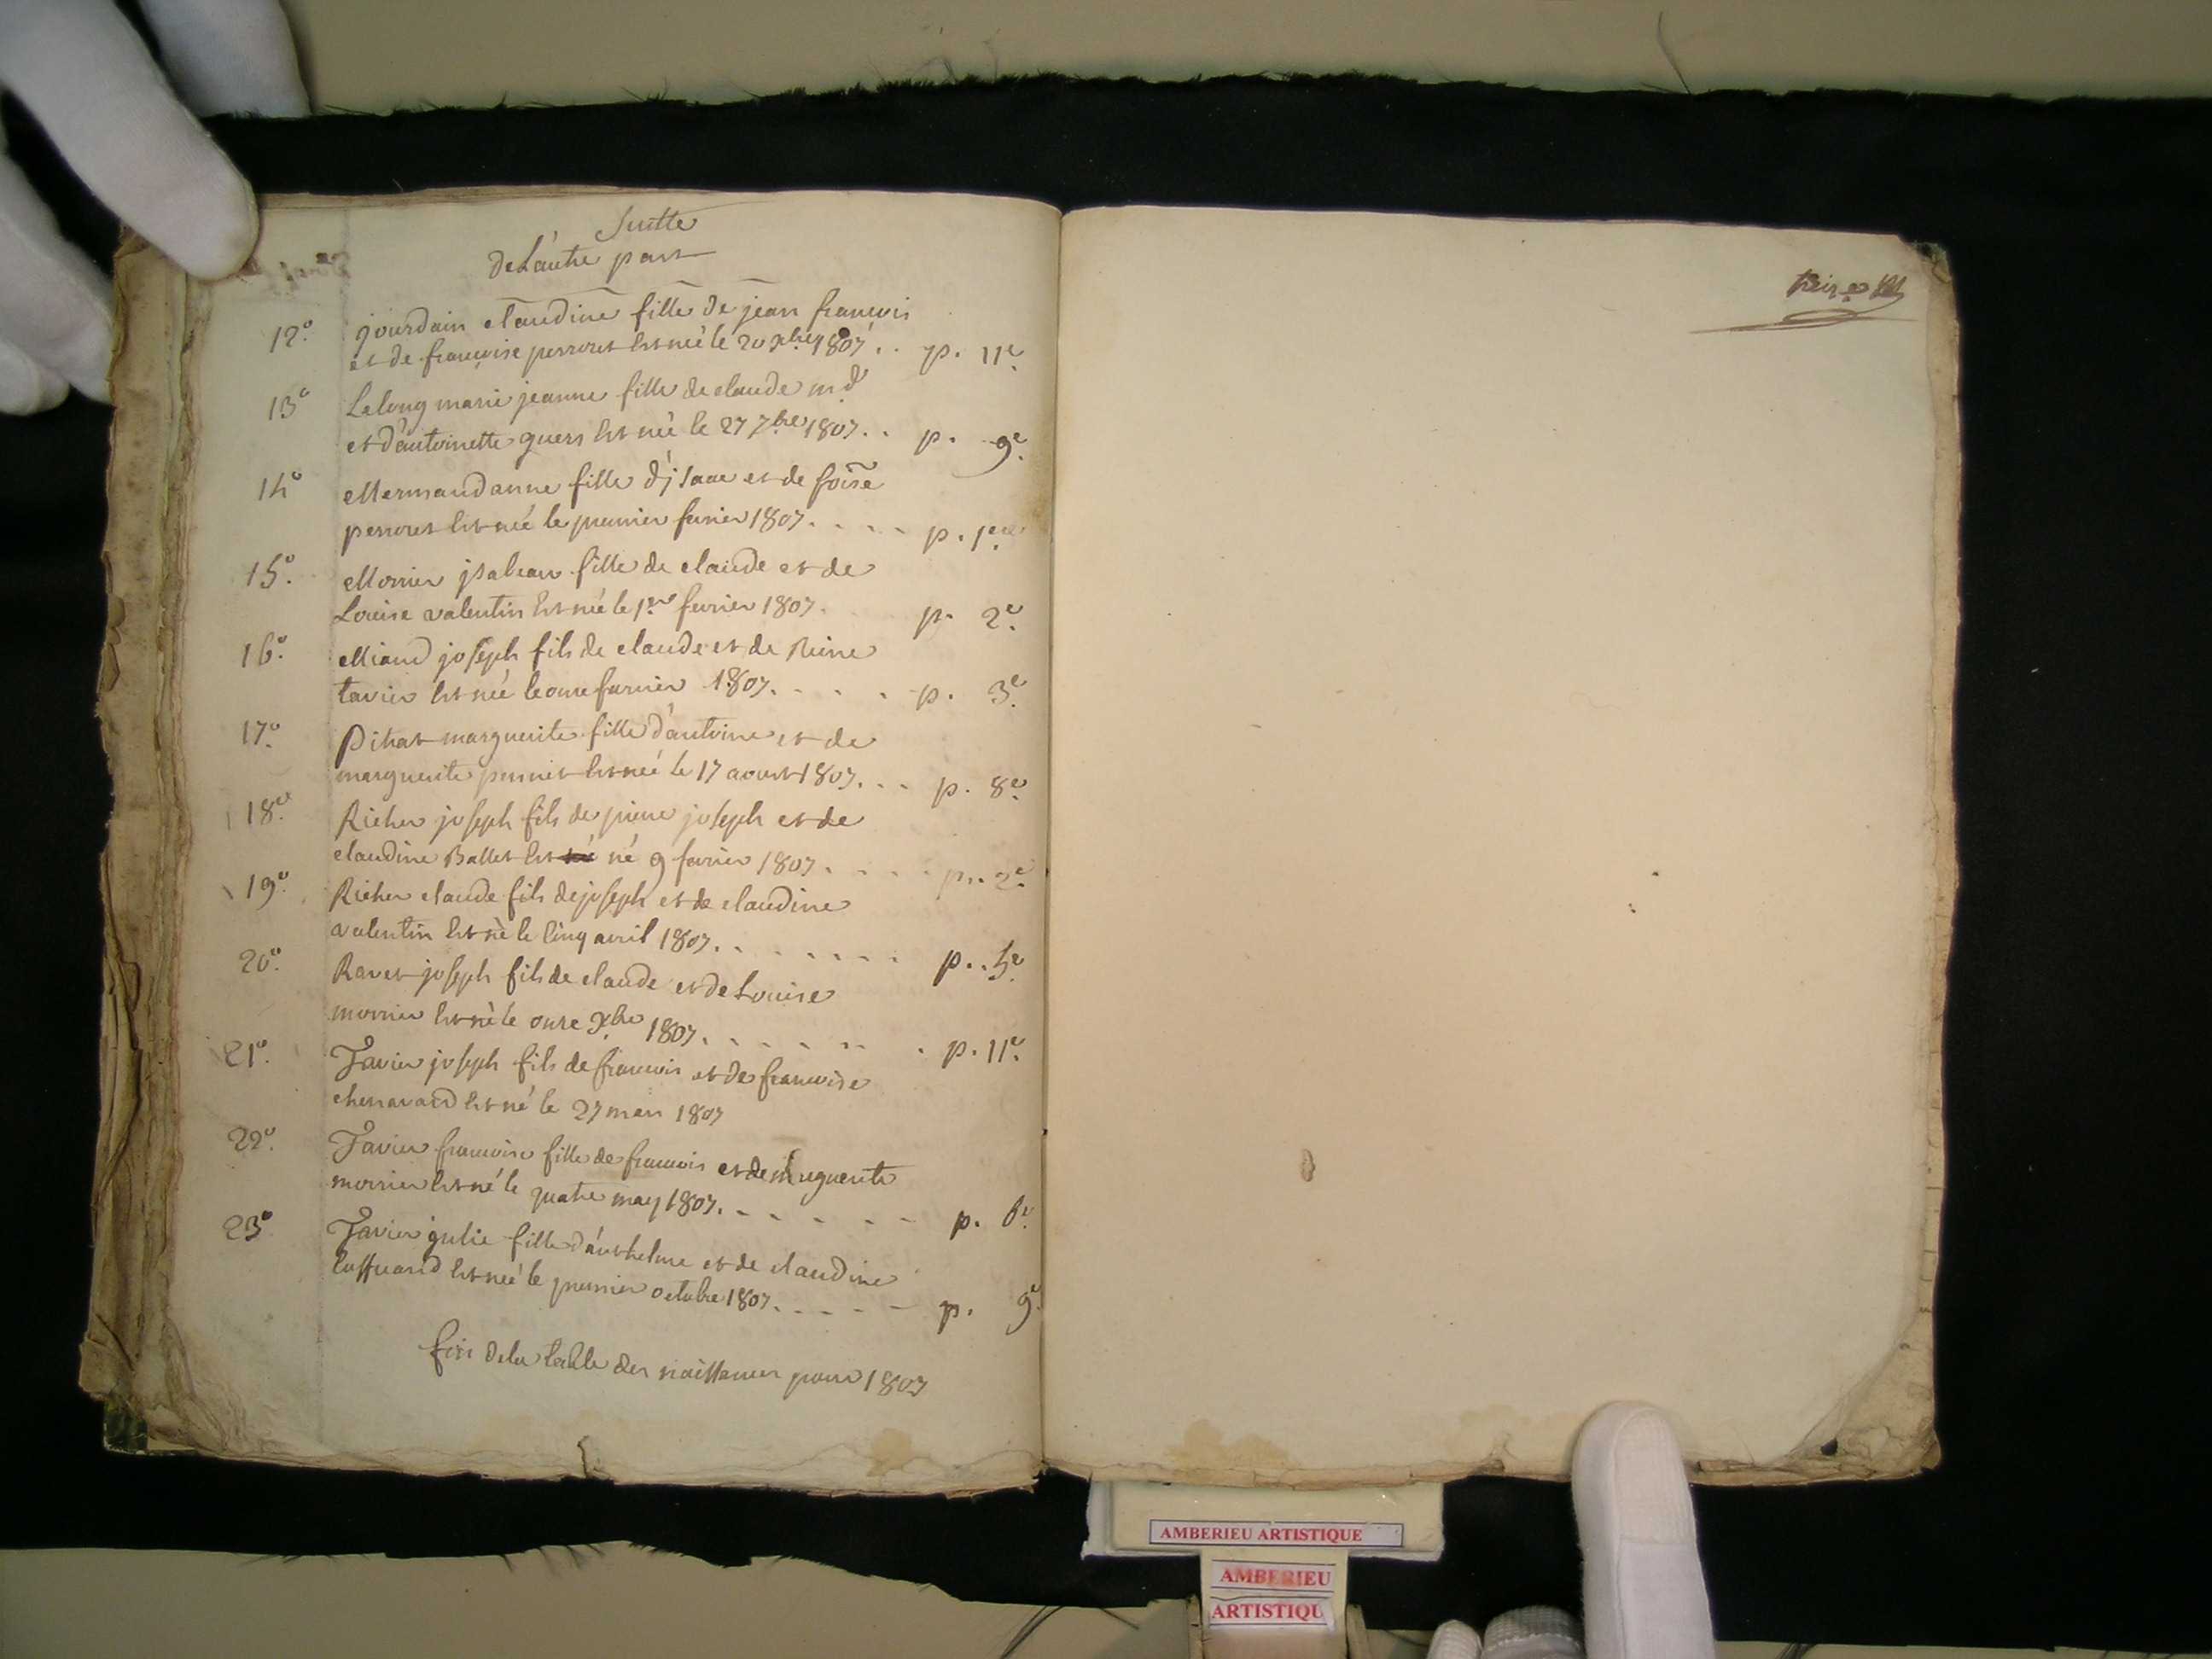 Suitte
de L'autre part
12.º jourdain claudine fille de jean francois
et de francoise perrouet Est née le 20 Xbre 1807 . . p. 11e
13º Lelong marie jeanne fille de claude md.
et d'antoinette guers Est née le 27 7bre 1807 . . p. 9e
14º Mermand anne fille d'jsaac et de foise
perrouet Est née le premier fevrier 1807 . . . . p. 1ere
15º. Morrier jsabeau fille de claude et de
Louise valentin Est née le 1er fevrier 1807. p. 2e
16º. Miand joseph fils de claude et de Reine
tavier Est né le onze fevrier 1807. . . . p. 3e
17º. Pitrat marguerite fille d'antoine et de
marguerite pernet Est née le 17 aoust 1807 . . . p. 8e
18º. Richer joseph fils de pierre joseph et de
claudine Ballet Est né 9 fevrier 1807 . . . . p. 2e
19º. Richer claude fils de joseph et de claudine
valentin Est né le Cinq avril 1807 . . . . . . . p. 5e
20º. Ravet joseph fils de claude et de Louise
morrier Est né le onze Xbre 1807 . . . . . . p. 11e
21º. Tavier joseph fils de francois et de francoise
chenavard Est né le 27 mars 1807
22º. Tavier francoise fille de francois et de marguerite
morrier Est né le quatre may 1807 . . . . . . p. 6e
23º Tavier julie fille d'anthelme et de claudine
Est née le premier octobre 1807 . . . . . p. 9e
fin de la table des naissances pour 1807
Treize
AMBERIEU ARTISTIQUE
AMBERIEU
ARTISTIQU